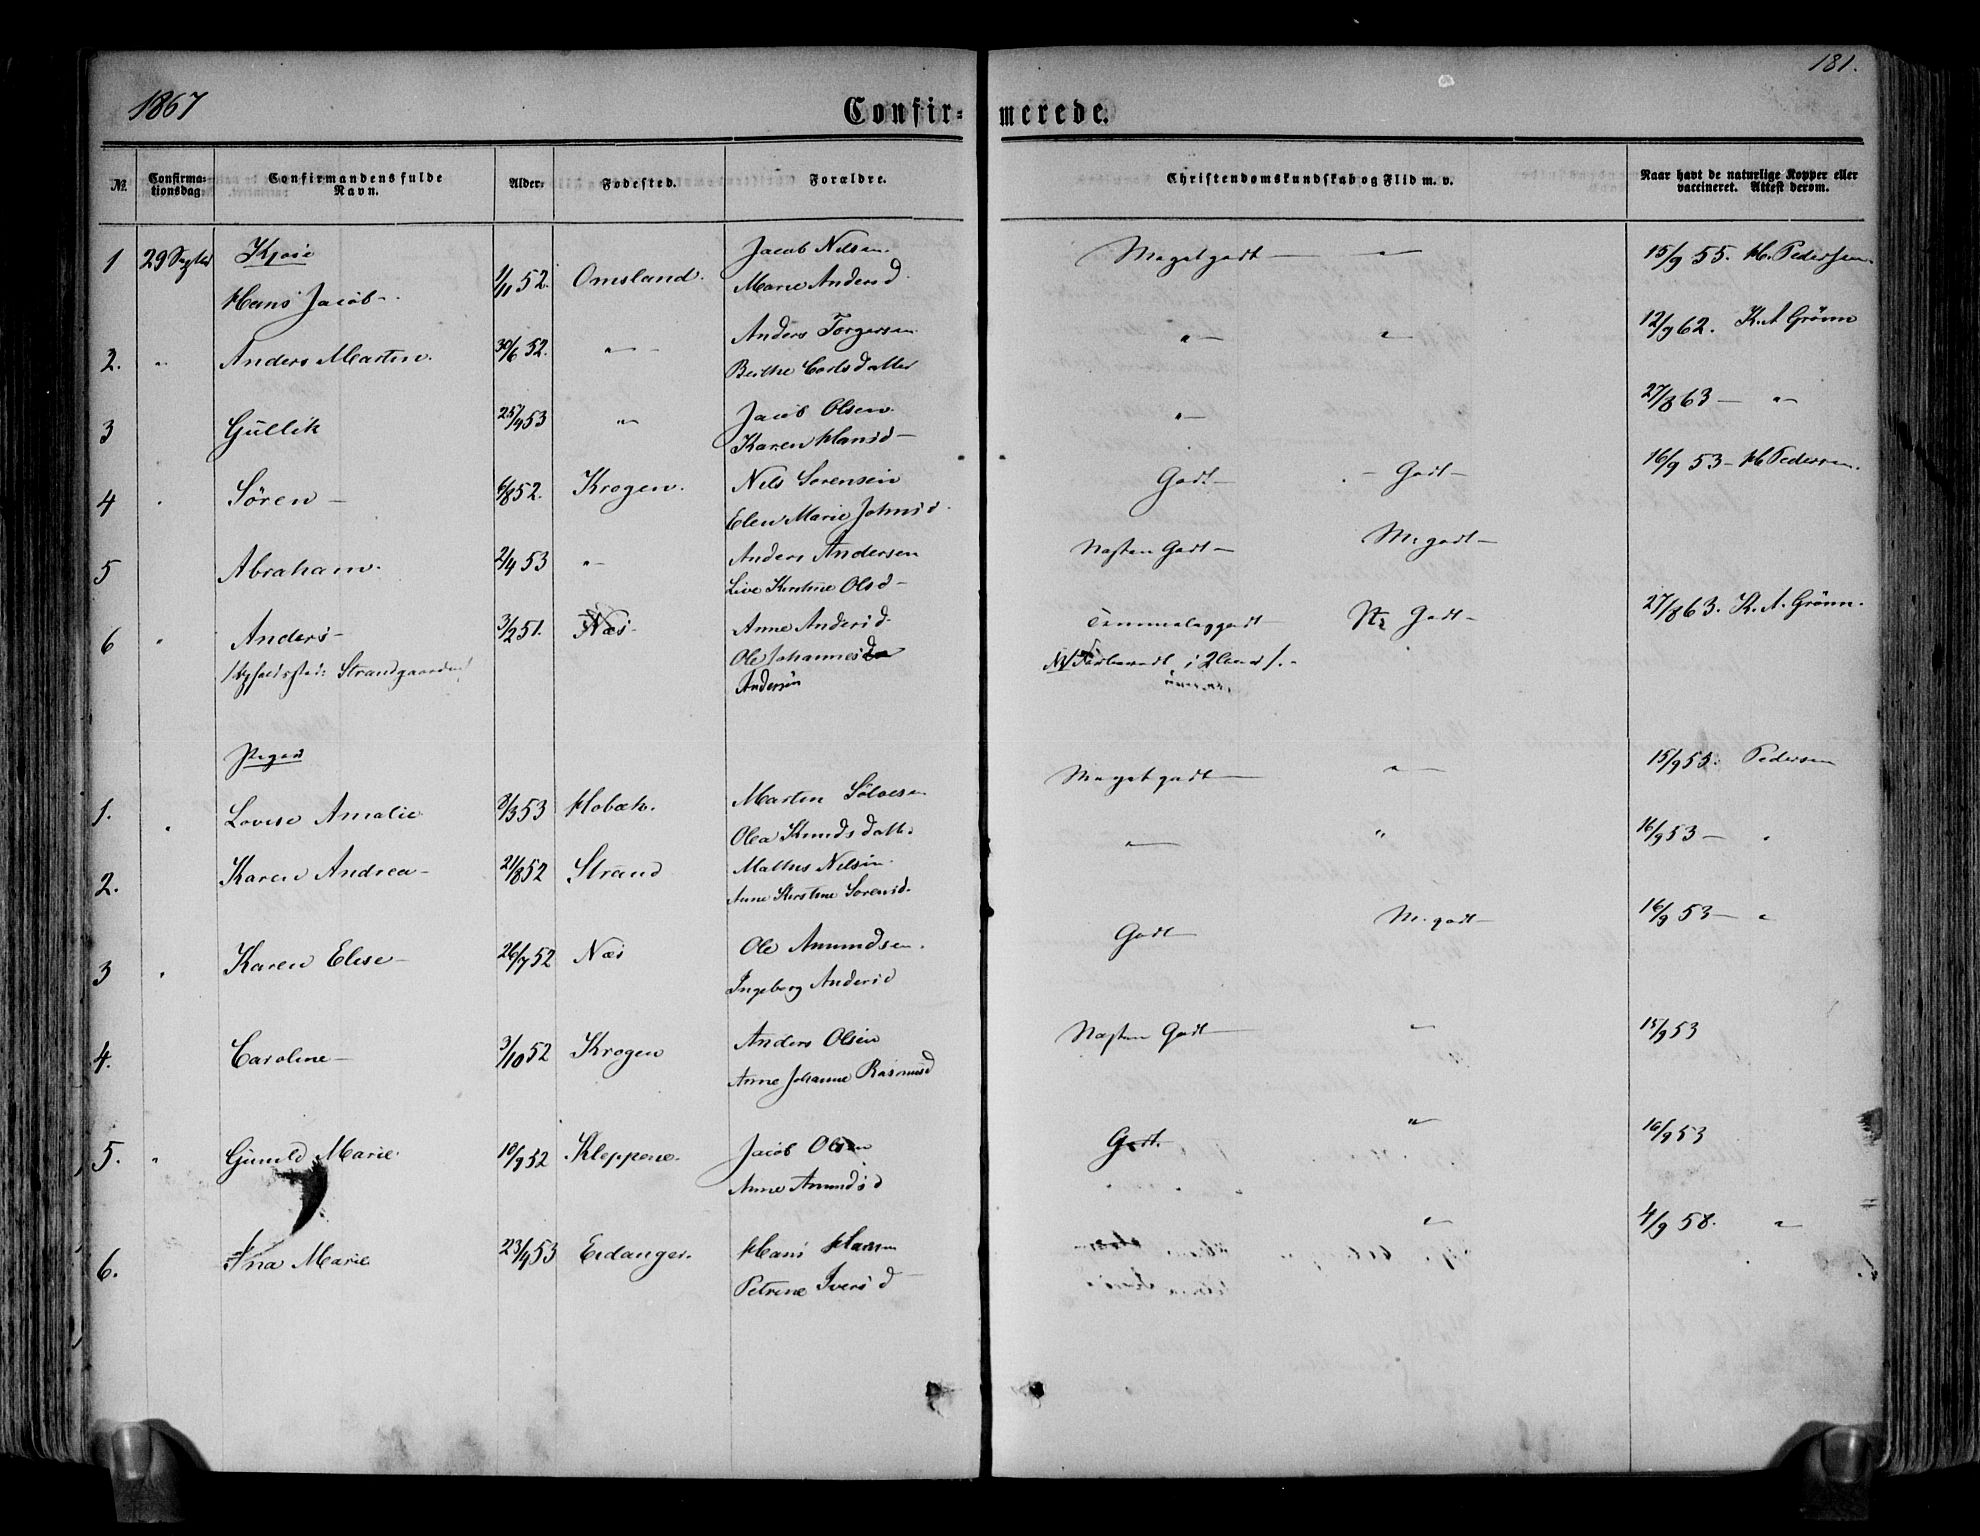 1867 Confir= merede. 181.
No. Confirma=tionsdag. Confirmandens fulde Navn. Alder. Fødested. Forældre. Christendomskundskab og Flid m. v. Naar havt de naturlige Kopper eller vaccineret. Attest derom.
1 29 Jacob Nilsen Megetgodt — „ — 15/9 55. H. Pedersen.
Hans Jacob – 1/11 52. Omsland. Marie Andersd.
2. „ Anders Martin. 30/6 52. — „ — Anders Torgersen „ — „ — 12/9 62. K. A Grönn
Berthe Carlsdatter
3 Gullik 25/4 53 „ Jacob Olsen. „ — 27/8 63 — „ —
Karen Hansd —
4 „ Sören — 6/8 52. Krogen. Nils Sorensen Godt — – Godt – 16/9 53 – H Pedersen.
Elen Marie Johnsd.
5 Abraham. 2/4 53 „ Anders Andersen Næsten Godt — M. godt —
Live Kirstine Olsd –
6 „ Anders – 3/2 51. Næs – Anne Andersd. Godt – 27/8 63. K. A. Grönn.
Strandgaarden Ole Johannes
Andersön
Piger
1. „ Lovise Amalie 8/3 53 Holbæk. Martin Megetgodt — „ — 15/9 53. Pedersen
Olea Knudsdatter
2. Karen Andrea – 21/8 52 Strand Mathis Nilsen. — „ — „ 16/9 53 – „
Anne Kirstine Sorensd.
3 „ Karen Elise – 26/7 52 Næs Ole Amundsen. Godt — M. godt — 16/9 53 – „
Ingeborg Andersd
4. Caroline – 3/10 52 Krogen Anders Olsen Næsten Godt — „ 15/9 53
Anne Johanne Rasmusd
5. „ Gunild Marie. 18/9 52 Kleppene. Jacob Olsen Godt. „ 16/9 53
Anne Amundsd
6. Ina Marie 23/4 53 Eidanger. Hans Hansen „ 4/9 58. „
Petrine Iversd –